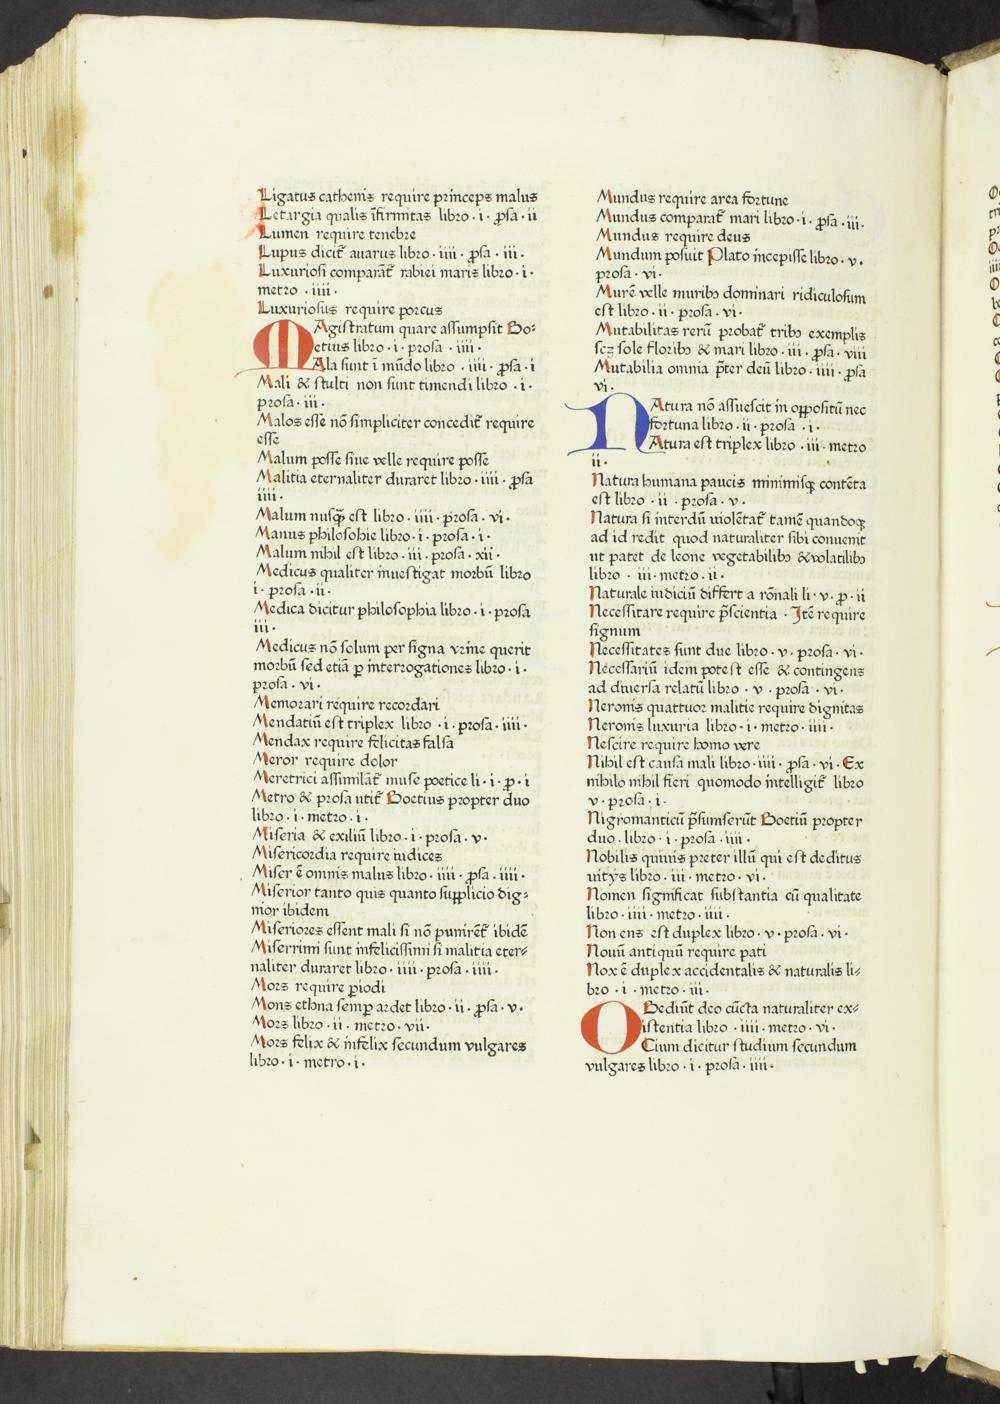 Ligatus cathenis require princeps malus
Letargia qualis ĩfirmitas libro · i · ꝓsa · ii
Lumen require tenebre
Lupus dicit᷑ auarus libro · iiii · ꝓsa · iii ·
Luxuriosi comparãt᷑ rabiei maris libro · i ·
metro · iiii ·
Luxuriosus require porcus
MAgistratum quare assumpsit Bo⸗
etius libro · i · prosa · iiii ·
Ala sunt ĩ mũdo libro · iiii · ꝓsa · i
Mali & stulti non sunt timendi libro · i ·
prosa · iii ·
Malos esse nõ simpliciter concedit᷑ require
esse
Malum posse siue velle require posse
Malitia eternaliter duraret libro · iiii · ꝓsa
iiii ·
Malum nusq̃ est libro · iiii · prosa · vi ·
Manus philosohie libro · i · prosa · i ·
Malum nihil est libro · iii · prosa · xii ·
Medicus qualiter inuestigat morbũ libro
i · prosa · ii ·
Medica dicitur philosophia libro · i · prosa
iii ·
Medicus nõ solum per signa vrine querit
morbũ sed etiã ꝑ interrogationes libro · i ·
prosa · vi ·
Memorari require recordari
Mendatiũ est triplex libro · i · prosa · iiii ·
Mendax require felicitas falsa
Meror require dolor
Meretrici assimilãt᷑ muse poetice li · i · ꝓ · i
Metro & prosa utit᷑ Boetius propter duo
libro · i · metro · i ·
Miseria & exiliũ libro · i · prosa · v ·
Misericordia require iudices
Miser ẽ omnis malus libro · iiii · ꝓsa · iiii ·
Miserior tanto quis quanto supplicio dig⸗
nior ibidem
Miseriores essent mali si nõ punirẽt᷑ ibidẽ
Miserrimi sunt infelicissimi si malitia eter⸗
naliter duraret libro · iiii · prosa · iiii ·
Mors require ꝑiodi
Mons ethna semꝑ ardet libro · ii · ꝓsa · v ·
Mors libro · ii · metro · vii ·
Mors felix & infelix secundum vulgares
libro · i · metro · i ·
Mundus require area fortune
Mundus comparat᷑ mari libro · i · ꝓsa · iii ·
Mundus require deus
Mundum posuit Plato incepisse libro · v ·
prosa · vi ·
Murẽ velle muribꝫ dominari ridiculosum
est libro · ii · prosa · vi ·
Mutabilitas rerũ probat᷑ tribꝫ exemplis
scꝫ sole floribꝫ & mari libro · iii · ꝓsa · viii
Mutabilia omnia p̃ter deũ libro · iiii · ꝓsa
vi ·
NAtura nõ assuescit in oppositũ nec
fortuna libro · ii · prosa · i ·
Atura est triplex libro · iii · metro
ii ·
Natura humana paucis minimisqꝫ contẽta
est libro · ii · prosa · v ·
Natura si interdũ uiolẽtat᷑ tamẽ quandoqꝫ
ad id redit quod naturaliter sibi conuenit
ut patet de leone vegetabilibꝫ & volatilibꝫ
libro · iii · metro · ii ·
Naturale iudiciũ differt a rõnali li · v · ꝓ · ii
Necessitare require p̃scientia · Itẽ require
signum
Necessitates sunt due libro · v · prosa · vi ·
Necessariũ idem potest esse & contingens
ad diuersa relatũ libro · v · prosa · vi ·
Neronis quattuor malitie require dignitas
Neronis luxuria libro · i · metro · iiii ·
Nescire require homo vere
Nihil est causa mali libro · iiii · ꝓsa · vi · Ex
nihilo nihil fieri quomodo intelligit᷑ libro
v · prosa · i ·
Nigromanticũ p̃sumserũt Boetiũ propter
duo · libro · i · prosa · iiii ·
Nobilis quiuis preter illũ qui est deditus
uitÿs libro · iii · metro · vi ·
Nomen significat substantia cũ qualitate
libro · iiii · metro · iiii ·
Non ens est duplex libro · v · prosa · vi ·
Nouũ antiquũ require pati
Nox ẽ duplex accidentalis & naturalis li⸗
bro · i · metro · iii ·
OBediũt deo cũcta naturaliter ex⸗
istentia libro · iiii · metro · vi ·
Cium dicitur studium secundum
vulgares libro · i · prosa · iiii ·